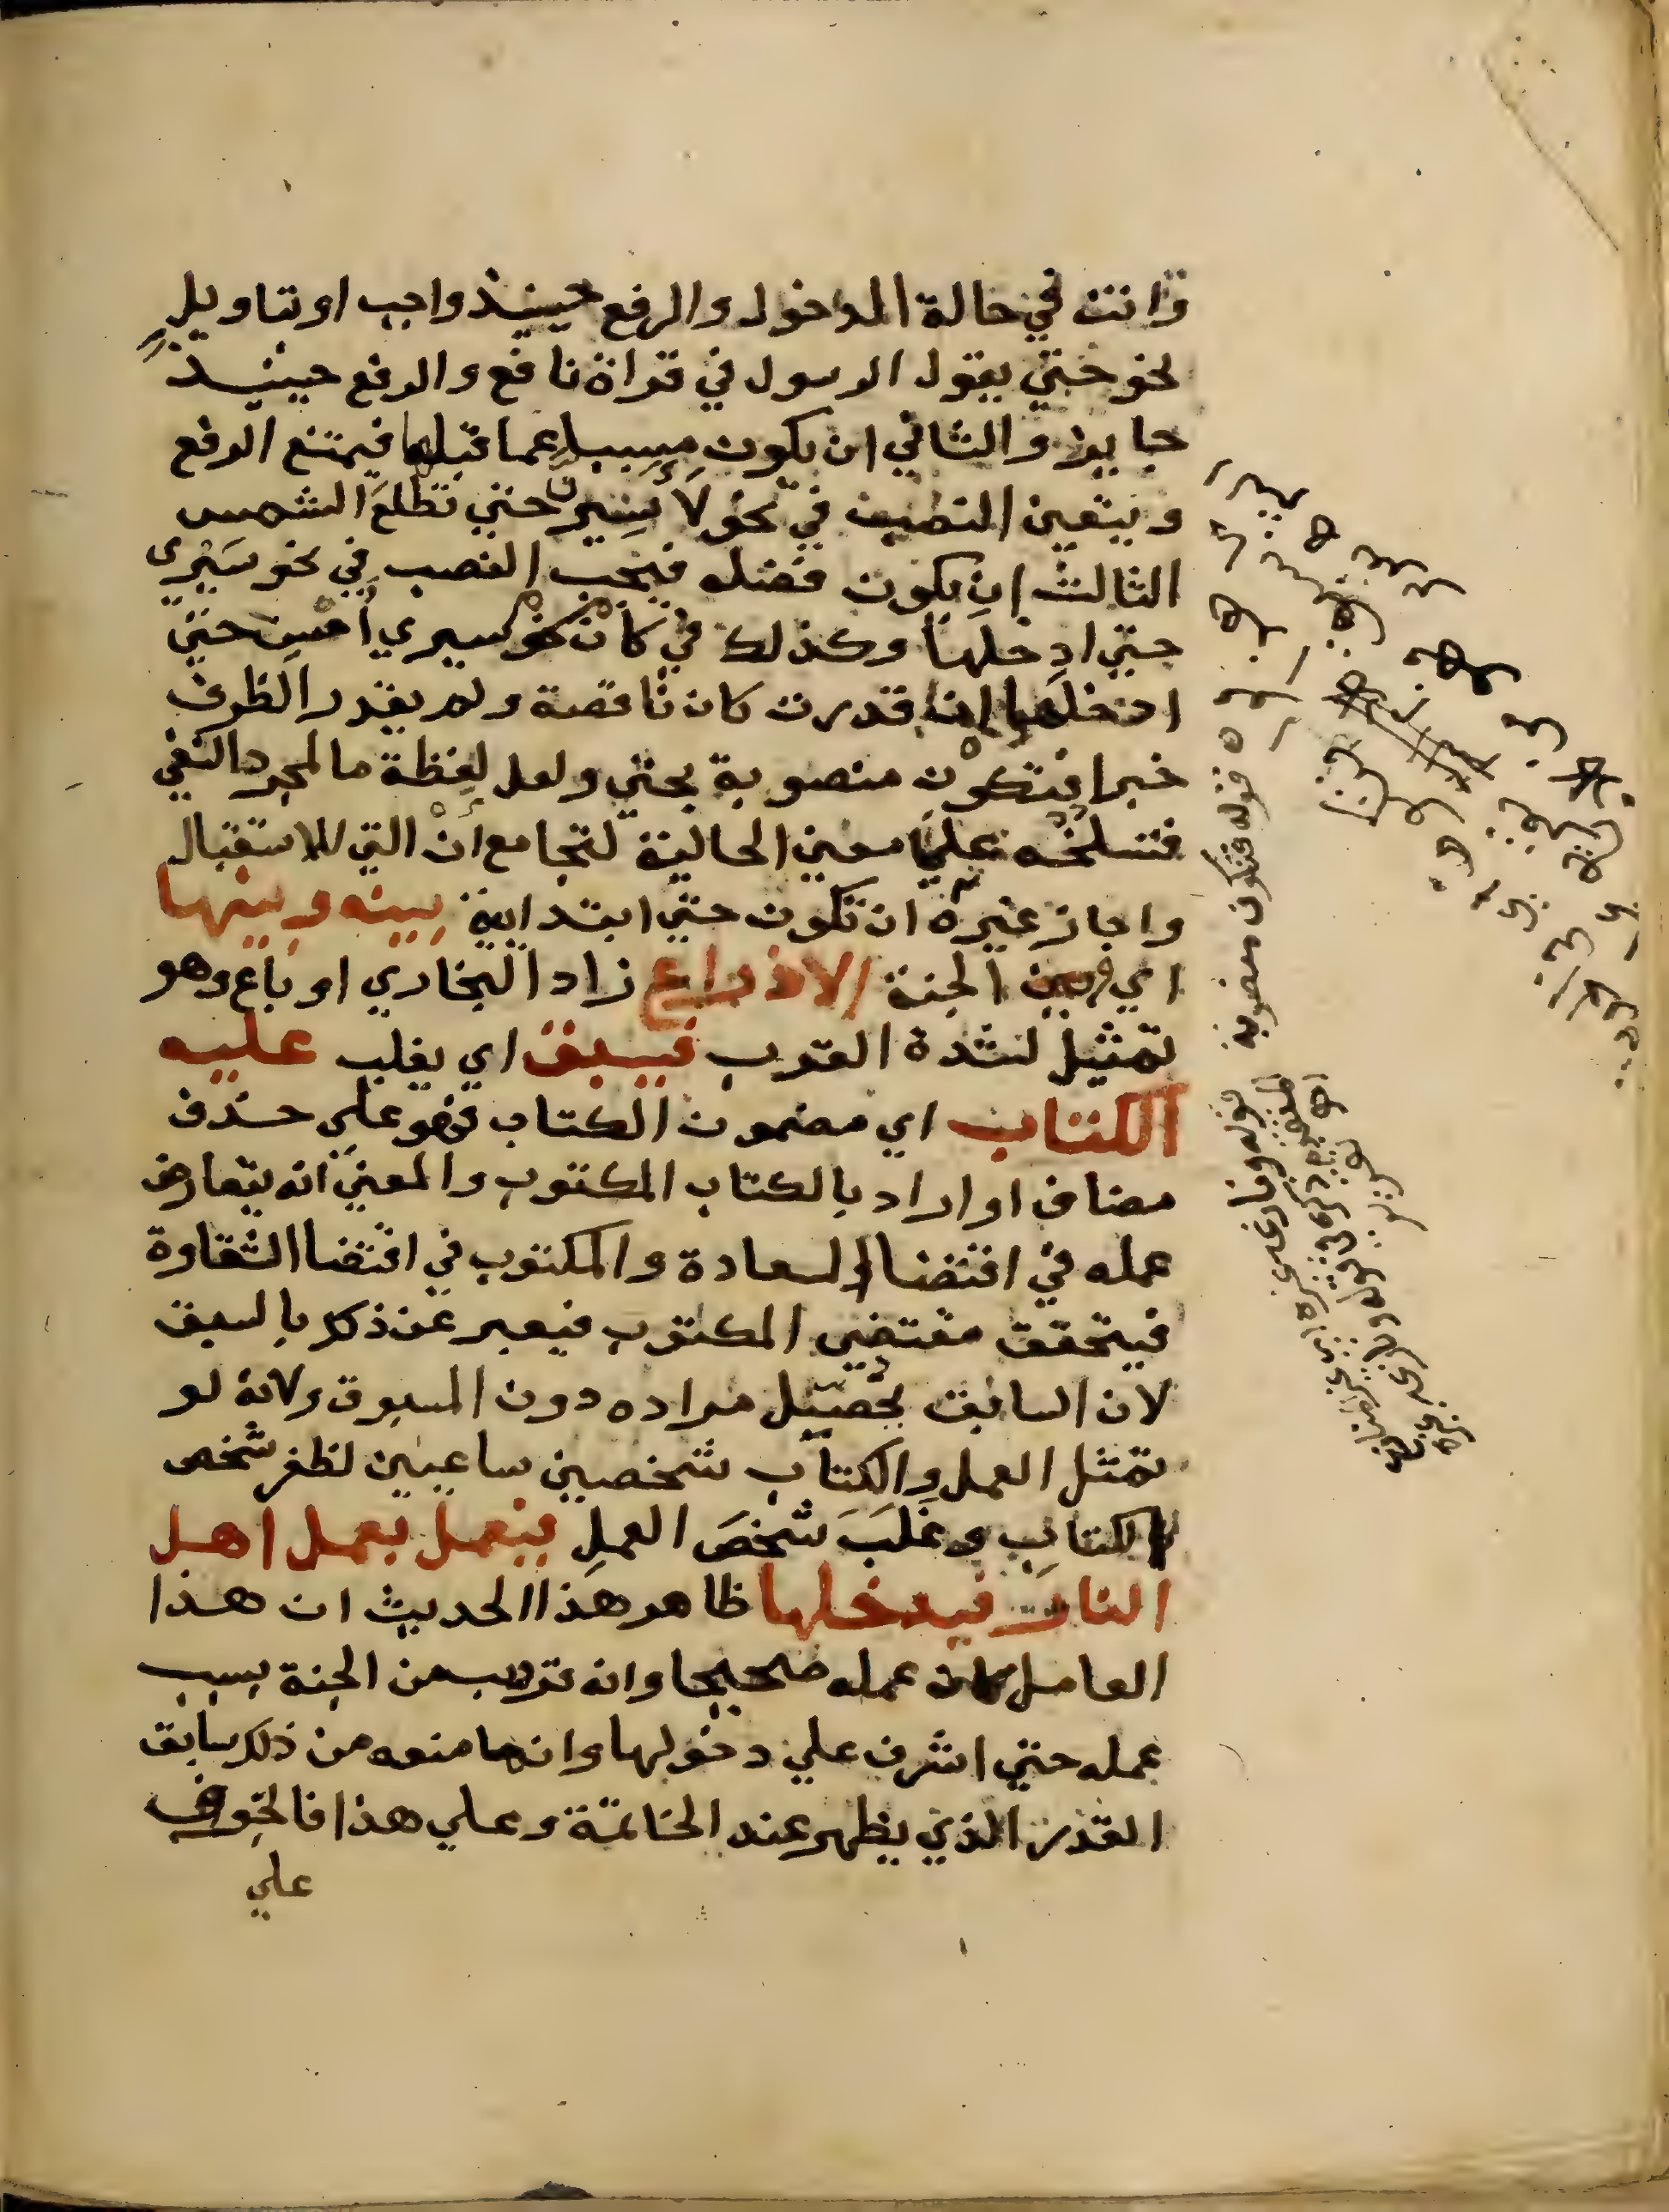 وانت في حالة الدخول والرفع حينيذ واجب او بتاويل
نحو حتي يقول الرسول في قراة نافع والرفع حينيذ
جايز والثاني ان يكون مسببا عما قبلها فيمتنع الرفع
ويتعين النصب في نحو لا يسيرن حتي تطلع الشمس
الثالث ان يكون فضله فيجب النصب في نحو سيري
حتي ادخلها وكذلك في كان نحو سيري امس حتي
ادخلها ان قدرت كان ناقصة ولم يقدر الظرف
خبرا فتكون منصوبة بحتي ولعل لفظة ما لمجرد النفي
فتسلخه علي معني الحالية لتجامع ان التي للاستقبال
واجاز غيره ان تكون حتي ابتدايية بينه وبينها
اي وبين الجنة الا ذراع زاد البخاري او باع وهو
تمثيل لشدة القرب فيسبق اي يغلب عليه
الكتاب اي مضمون الكتاب فهو علي حذف
مضاف او اراد بالكتاب المكتوب والمعني انه يتعارض
عمله في اقتضا السعادة والمكتوب في اقتضا الشقاوة
فيتحقق مقتضي المكتوب فيعبر عن ذكر بالسبق
لان السابق يحصل مراده دون المسبوق ولانه لو
تمثل العمل والكتاب شخصين ساعيين لظفر شخص
الكتاب وغلب شخص العمل فيعمل بعمل اهل
النار فيدخلها ظاهر هذا الحديث ان هذا
العامل كان عمله صحيحا وانه قرب من الجنة بسبب
عمله حتي اشرف علي دخولها وانما منعه من ذلك سابق
القدر الذي يظهر عند الخاتمة وعلي هذا فالخوف
علي
قوله فتكون منصوبة